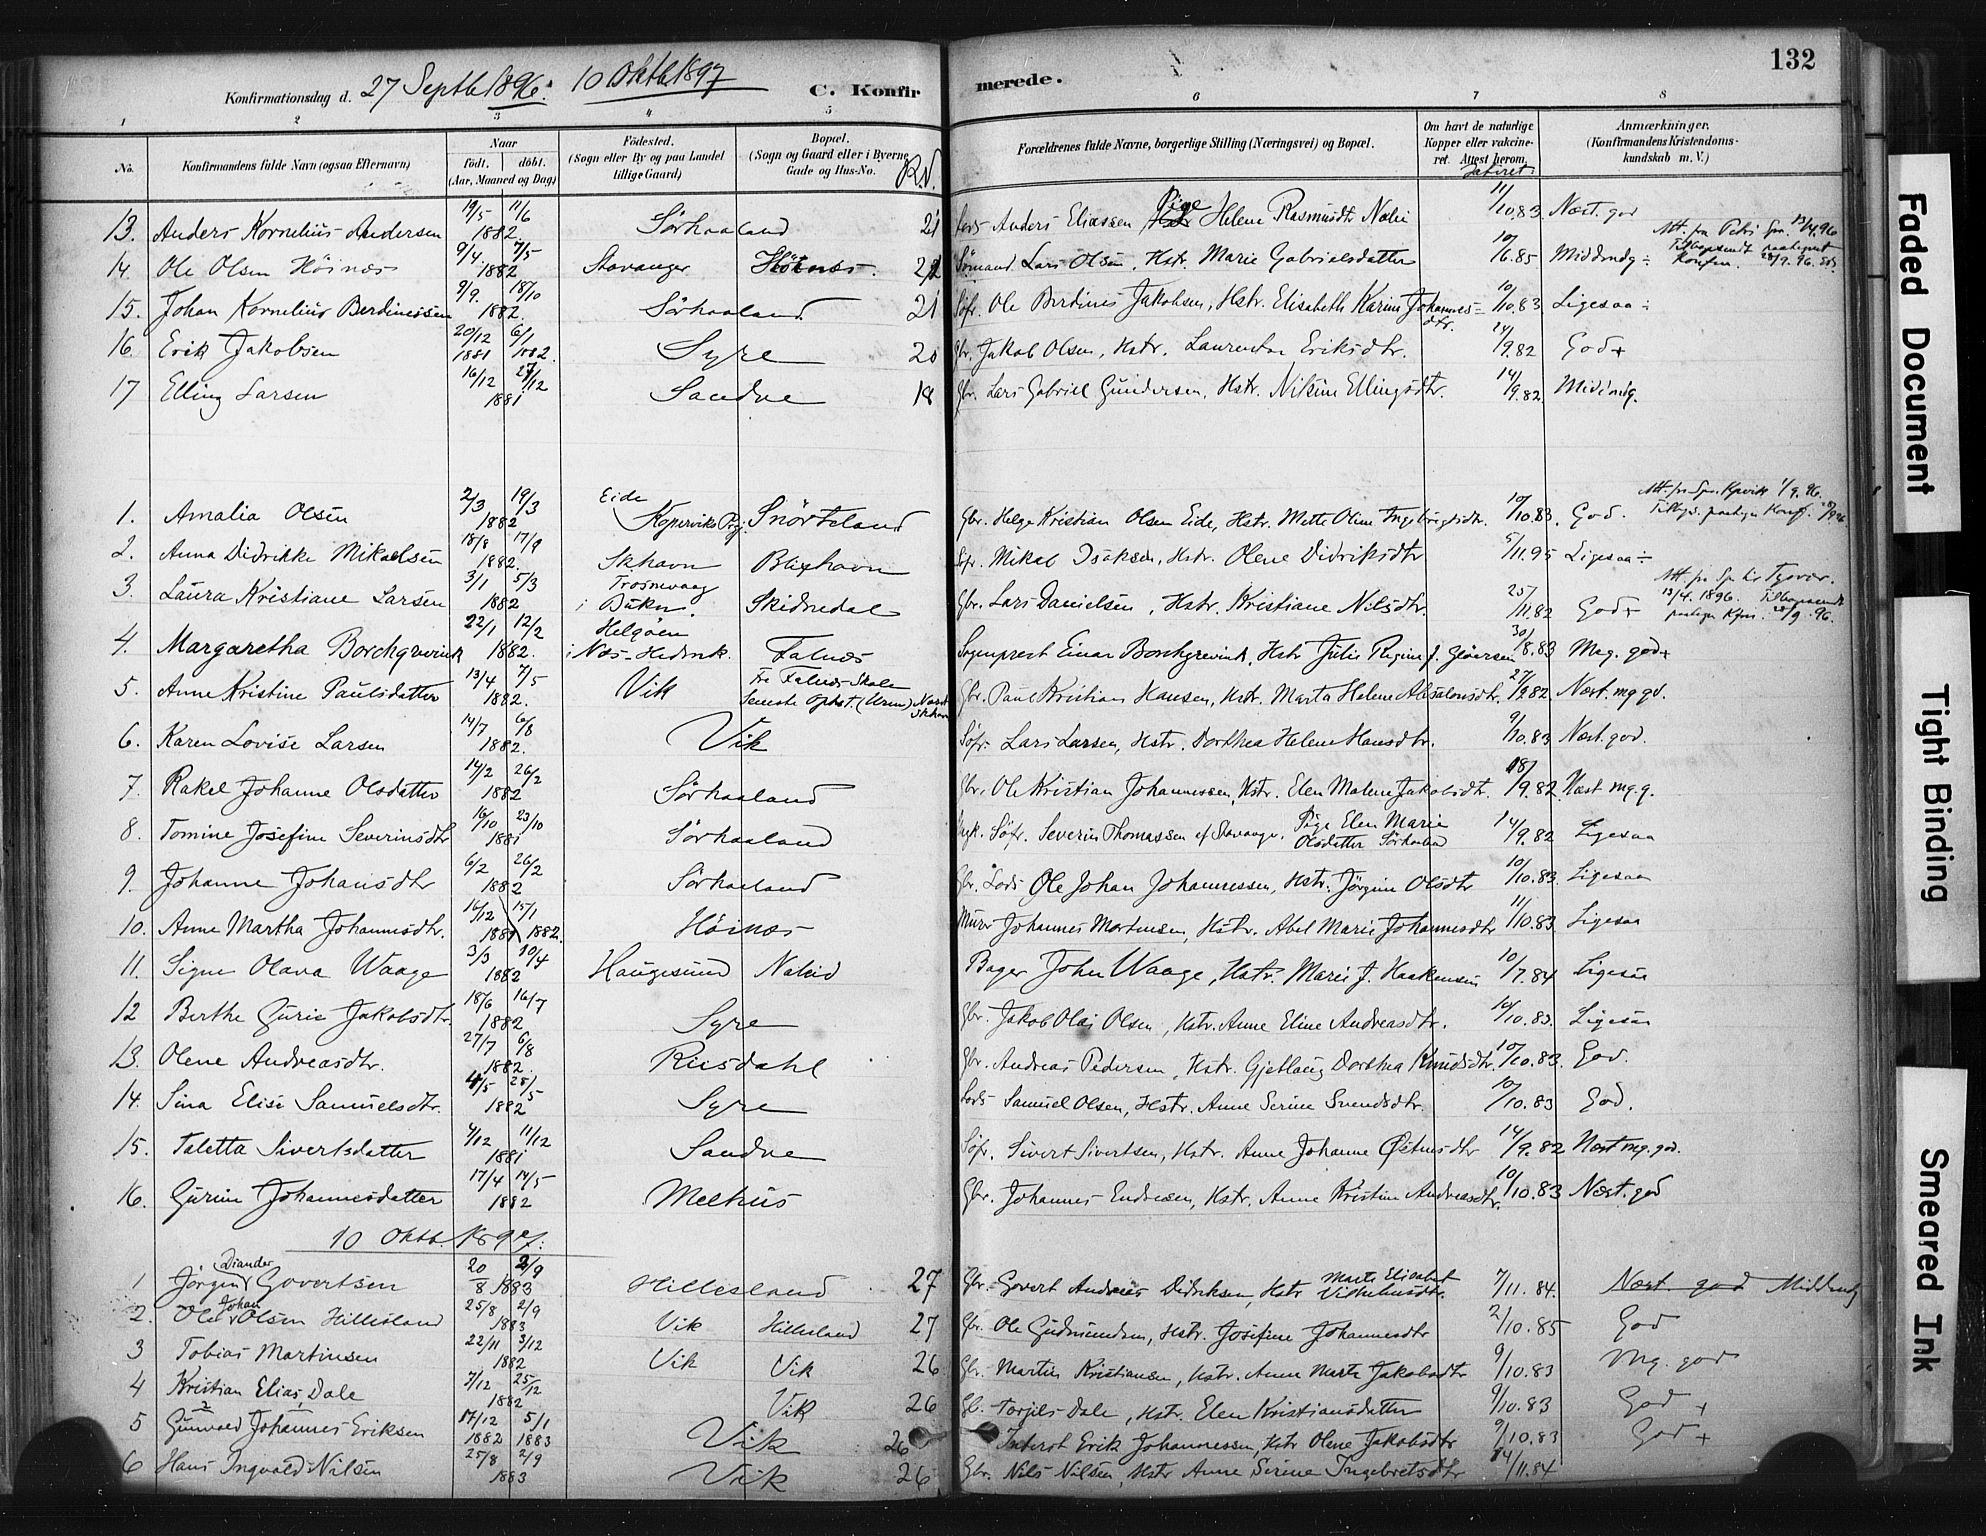 132
Konfirmationsdag d. 27 Septb 1896. 10 Oktb 1897 C. Konfirmerede.
1 2 3 4 5 6 7 8
No. Konfirmandens fulde Navn (ogsaa Efternavn) Naar født. døbt. (Aar, Maaned og Dag) Fødested. (Sogn eller By og paa Landet tillige Gaard) Bopæl. (Sogn og Gaard eller i Byerne Gade og Hus-No. Forældrenes fulde Navne, borgerlige Stilling (Næringsvei) og Bopæl. Om havt de naturlige Kopper eller vaccineret. Attest herom, dateret. Anmærkninger. (Konfirmandens Kristendomskundskab m. V.)
13. Anders Kornelius Andersen 19/5 11/6 1882. Sörhaaland 21 Lods Anders Eliassen Pige Helene Rasmusdtr 11/10.83 Næst. god
14. Ole Olsen Höinæs 9/4 7/5 1882 Stavanger Höinæs. 21 Sömand Lars Olsen, Hstr. Marie Gabrielsdatter 10/6.85 Middmdg ÷ Att. fra Petri 13/4.96
15. Johan Kornelius Berdinessen 9/9. 18/10 1882. Sörhaaland 21 Söfr. Ole Berdines Jakobsen, Hstr. Elisabeth Karine Johannesdtr. 10/10.83 Ligesaa ÷
16 Erik Jakobsen 20/12 1881 6/1 1882. Syre 20 Gbr. Jakob Olsen, Hstr. Laurentse Eriksdtr. 14/9.82 God +
17 Elling Larsen 16/12 27/12 1881 Sandve 18 Gbr. Lars Gabriel Gundersen, Hstr. Nilsine Ellingsdtr. 14/9.82. Middmdg.
1. Amalia Olsen 2/3 19/3 1882 Eide Kopervik Snörteland Gbr. Helge Kristian Olsen Eide, Hstr. Mette Oline Ingebrigtsdtr. 10/10.83. God.
2. Anna Didrikke Mikaelsen 18/8 17/9 1882. Skhavn Blixhavn Sfr. Mikal Isaksen, Hstr. Olene Didriksdtr 5/11.95 Ligesaa ÷
3. Laura Kristiane Larsen 3/1 5/3 1882 i Bukn. Skidnedal Gbr. Lars Danielsen, Hstr. Kristiane Nilsdtr. 25/11.82 God + 13/4. 1896.
4. Margaretha Borchgrevink 22/1 12/2 1882. Helgöen i Næs-Hedmk. Falnæs Sogneprest Einar Borchgrevink, Hstr Julie Regine J. 30/8.83 Meg. god +
5. Anne Kristine Paulsdatter 13/4 7/5 1882. Vik Fr Falnæs Skole Gbr. Paul Kristian Hansen, Hstr. Marta Helene Absalonsdtr. 27/9.82 Næst. mg gd.
6. Karen Lovise Larsen 14/7 6/8 1882. Vik Söfr. Lars Larsen, Hstr. Dorthea Helene Hansdtr. 9/10.83 Næst. god.
7. Rakel Johanne Olsdatter 14/2 26/2 1882 Sörhaaland Gbr. Ole Kristian Johannessen, Hstr. Elen Malene Jakobsdtr. 18/9.82. Næst mg.g.
8. Tomine Josefine Severinsdtr 16/10 23/10 1881 Sörhaaland Ungk. Söfr. Severin Thomassen af Stavanger. Pige Elen Marie Olsdatter Sörhaaland 14/9.82 Ligesaa
9. Johanne Johansdtr 6/2 26/2 1882 Sörhaaland Gbr. Lods Ole Johan Johannessen, Hstr. Jörgine Olsdtr 10/10.83. Ligesaa
10. Anne Martha Johannesdtr. 14/12 15/1 1881 1882. Höinæs Murer Johannes Mortensen, Hstr. Abel Marie Johannesdtr 11/10.83 Ligesaa
11. Signe Olava Waage 3/3 10/4 1882 Haugesund Bager John Waage, Hstr. Marie J. Haakensen 10/7.84 Ligesaa
12 Berthe Gurie Jakobsdtr. 18/6 16/7 1882 Syre Gbr. Jakob Olai Olsen, Hstr. Anne Eline Andreasdtr. 10/10.83. Ligesaa
13. Olene Andreasdtr. 27/7 6/8 1882. Riisdahl Gbr. Andreas Pedersen, Hstr. Gjetlaug Dorthea Knudsdtr. 10/10.83. God.
14. Sina Elise Samuelsdtr. 4/5 28/5 1882 Syre Lods Samuel Olsen, Hstr. Anne Serine Svendsdtr. 10/10.83 God.
15. Taletta Sivertsdatter 4/12 11/12 1881 Sandve Söfr. Sivert Sivertsen, Hstr. Anne Johanne Östensdtr 14/9.82 Næst mg.god.
16. Gurine Johannesdatter 17/4 14/5 1882 Melhus Gbr. Johannes Endresen, Hstr. Anne Kristine Andreasdtr. 10/10.83 Næst. god
10 Oktb. 1897.
1 Jörgen Diander Govertsen 20/8 2/9 1883 Hillesland 27 Gbr. Govert Andreas Didriksen, Hstr Marte Elisabet Vilhelmsdtr. 7/11.84. Næst god Middmdg
2. Ole Johan Olsen Hillesland 25/8 2/9 1883 Vik Hillesland 27 Gbr. Ole Gudmundsen, Hstr. Josefine Johannesdtr 2/10.85 God
3 Tobias Martinsen 22/11 3/12 1882 Vik Vik 26 Gbr. Martin Kristiansen, Hstr. Anne Marte Jakobsdtr 9/10.83 Mg. god
4 Kristian Elias Dale 7/12 25/12 1882 Vik 26 Gb. Torjels Dale, Hstr. Elen Kristiansdatter 9/10.83 God +
5 Gunvald Johannes Eriksen 17/12 1882 5/1 1883 Vik 26 Inderst Erik Johannessen, Hstr Olene Jakobsdtr 9/10.83 God +
6 Hans Ingvald Nilsen 25/8 2/9 1883 Vik 26 Gbr. Nils Nilsen, Hstr Anne Serine Ingebretsdtr 14/11.84
Faded Document
Tight Binding
Smeared Ink